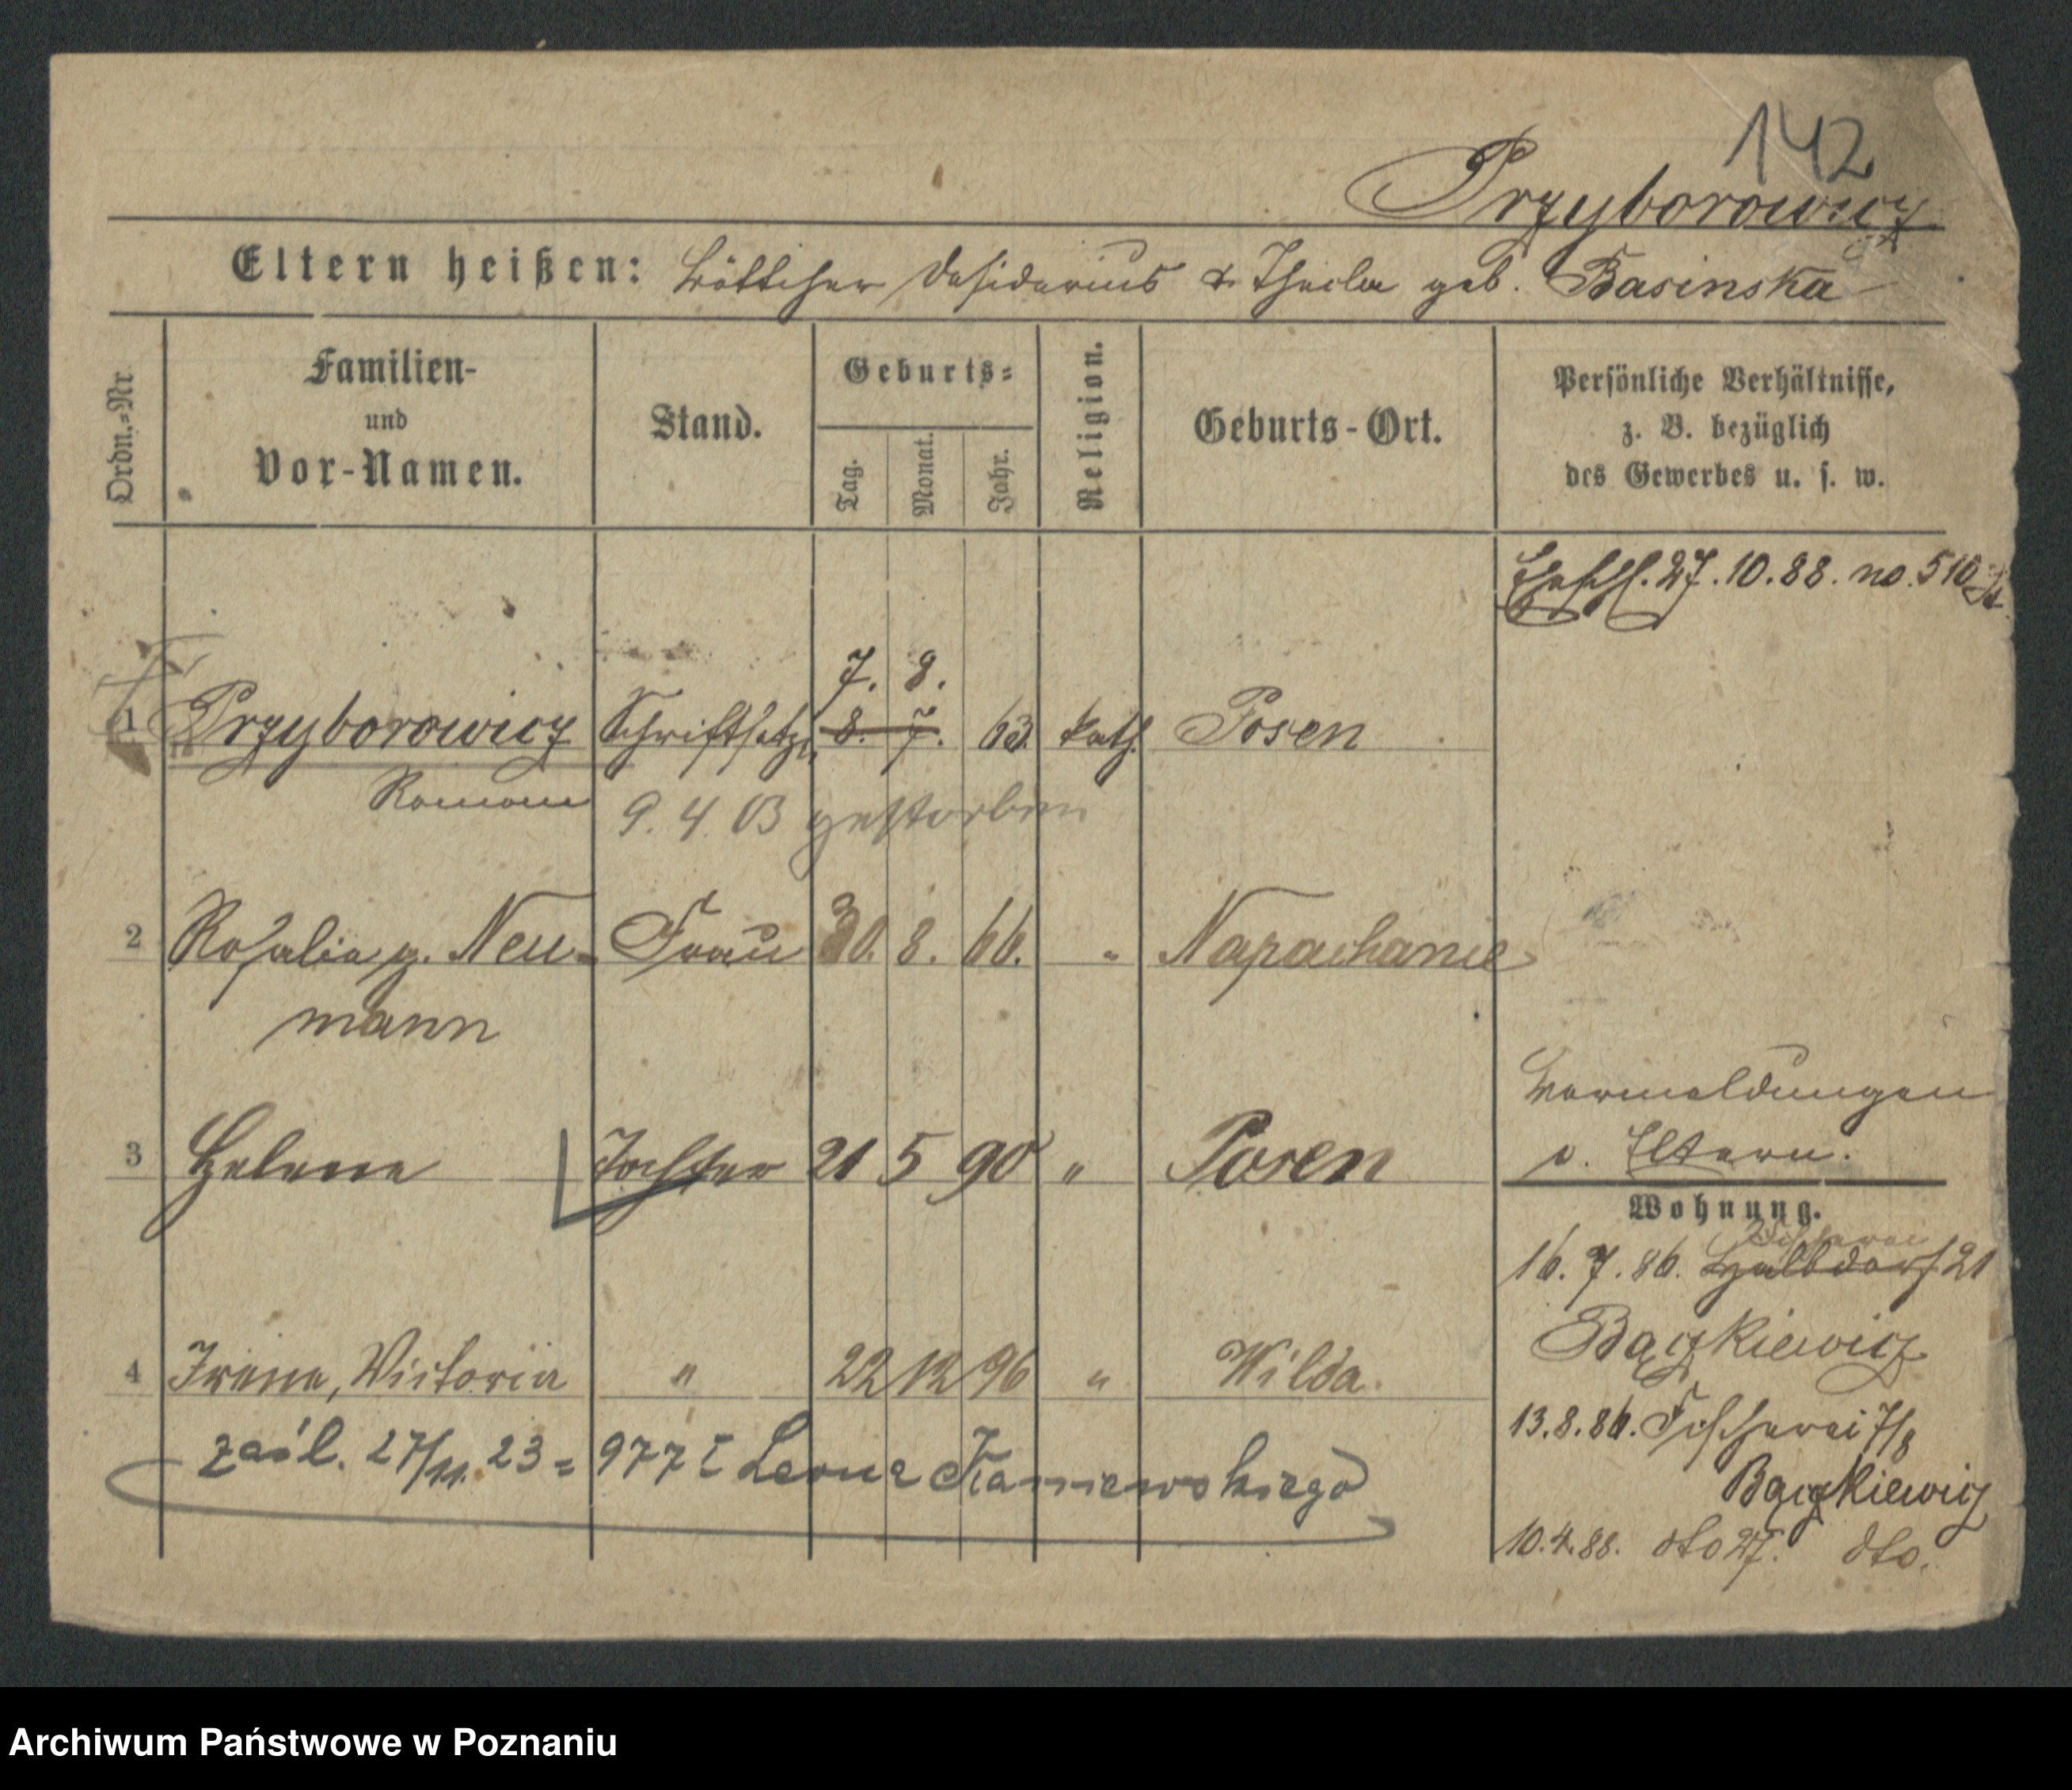 142
Przyborowicz
Eltern heißen: Böttcher Desiderius & Thecla geb. Basinska
Ordn.-Nr.
Familien-
und
Vor-Namen.
Stand.
Geburts-
Tag.
Monat.
Jahr.
Religion.
Geburts-Ort.
Persönliche Verhältnisse,
z. B. bezüglich
des Gewerbes u. s. w.
Eheschl. 27.10.88. no. 510
7. 8.
1 Przyborowicz Schriftsetzer 8. 7. 63. kath. Posen
Roman
9. 4. 03 gestorben
2 Rosalia g. Neu- Frau 30. 8. 66. " Napachanie
mann
3 Helene Tochter 21 5 90 " Posen
Vormeldungen
v. Eltern.
Wohnung.
Fischerei
16. 7. 86. Halbdorf 21
Bączkiewicz
4 Irena, Victoria " 22 12 96 " Wilda.
13.8.86. Fischerei 7/8
Bączkiewicz
zaśl. 27/11. 23 = 977 I Leona Kaniewskiego
10.4.88. dto 27. dto.
Archiwum Państwowe w Poznaniu